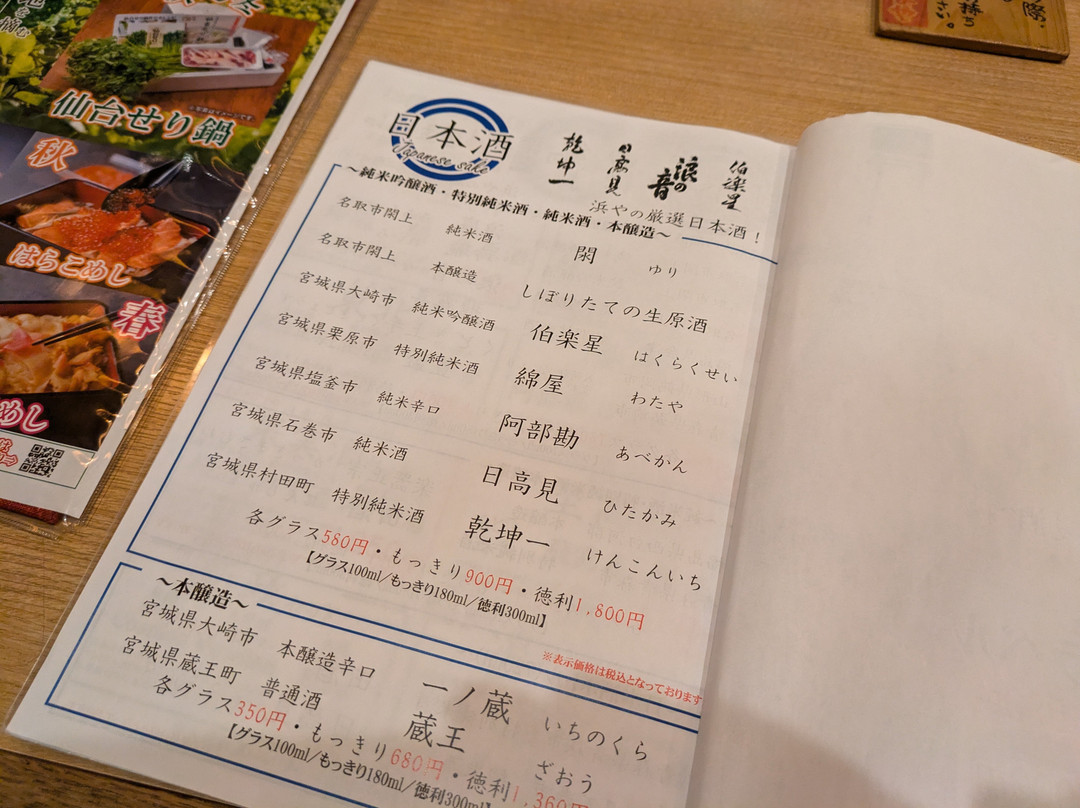 仙台せり鍋
秋
はらこめし
春
めし
日本酒
Japanese sake
乾坤一
日高見
浪の音
伯楽星
浜やの厳選日本酒!
~純米吟醸酒・特別純米酒・純米酒・本醸造~
名取市閖上 純米酒 閖 ゆり
名取市閖上 本醸造 しぼりたての生原酒
宮城県大崎市 純米吟醸酒 伯楽星 はくらくせい
宮城県栗原市 特別純米酒 綿屋 わたや
宮城県塩釜市 純米辛口 阿部勘 あべかん
宮城県石巻市 純米酒 日高見 ひたかみ
宮城県村田町 特別純米酒 乾坤一 けんこんいち
各グラス580円・もっきり900円・徳利1,800円
【グラス100ml/もっきり180ml/徳利300ml】
※表示価格は税込となっております
~本醸造~
宮城県大崎市 本醸造辛口 一ノ蔵 いちのくら
宮城県蔵王町 普通酒 蔵王 ざおう
各グラス350円・もっきり680円・徳利1,360円
【グラス100ml/もっきり180ml/徳利300ml】